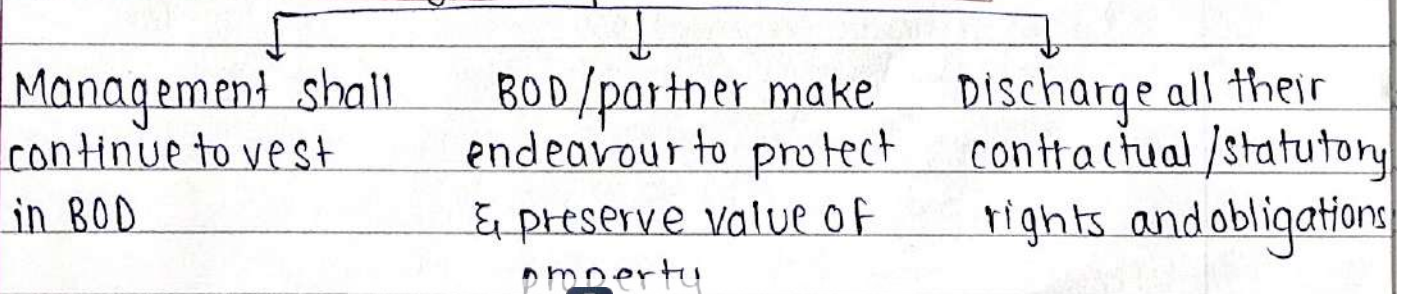 Management shall
continue to vest
in BOD
BOD/partner make
endeavour to protect
& preserve value of
property
Discharge all their
contractual/statutory
rights and obligations